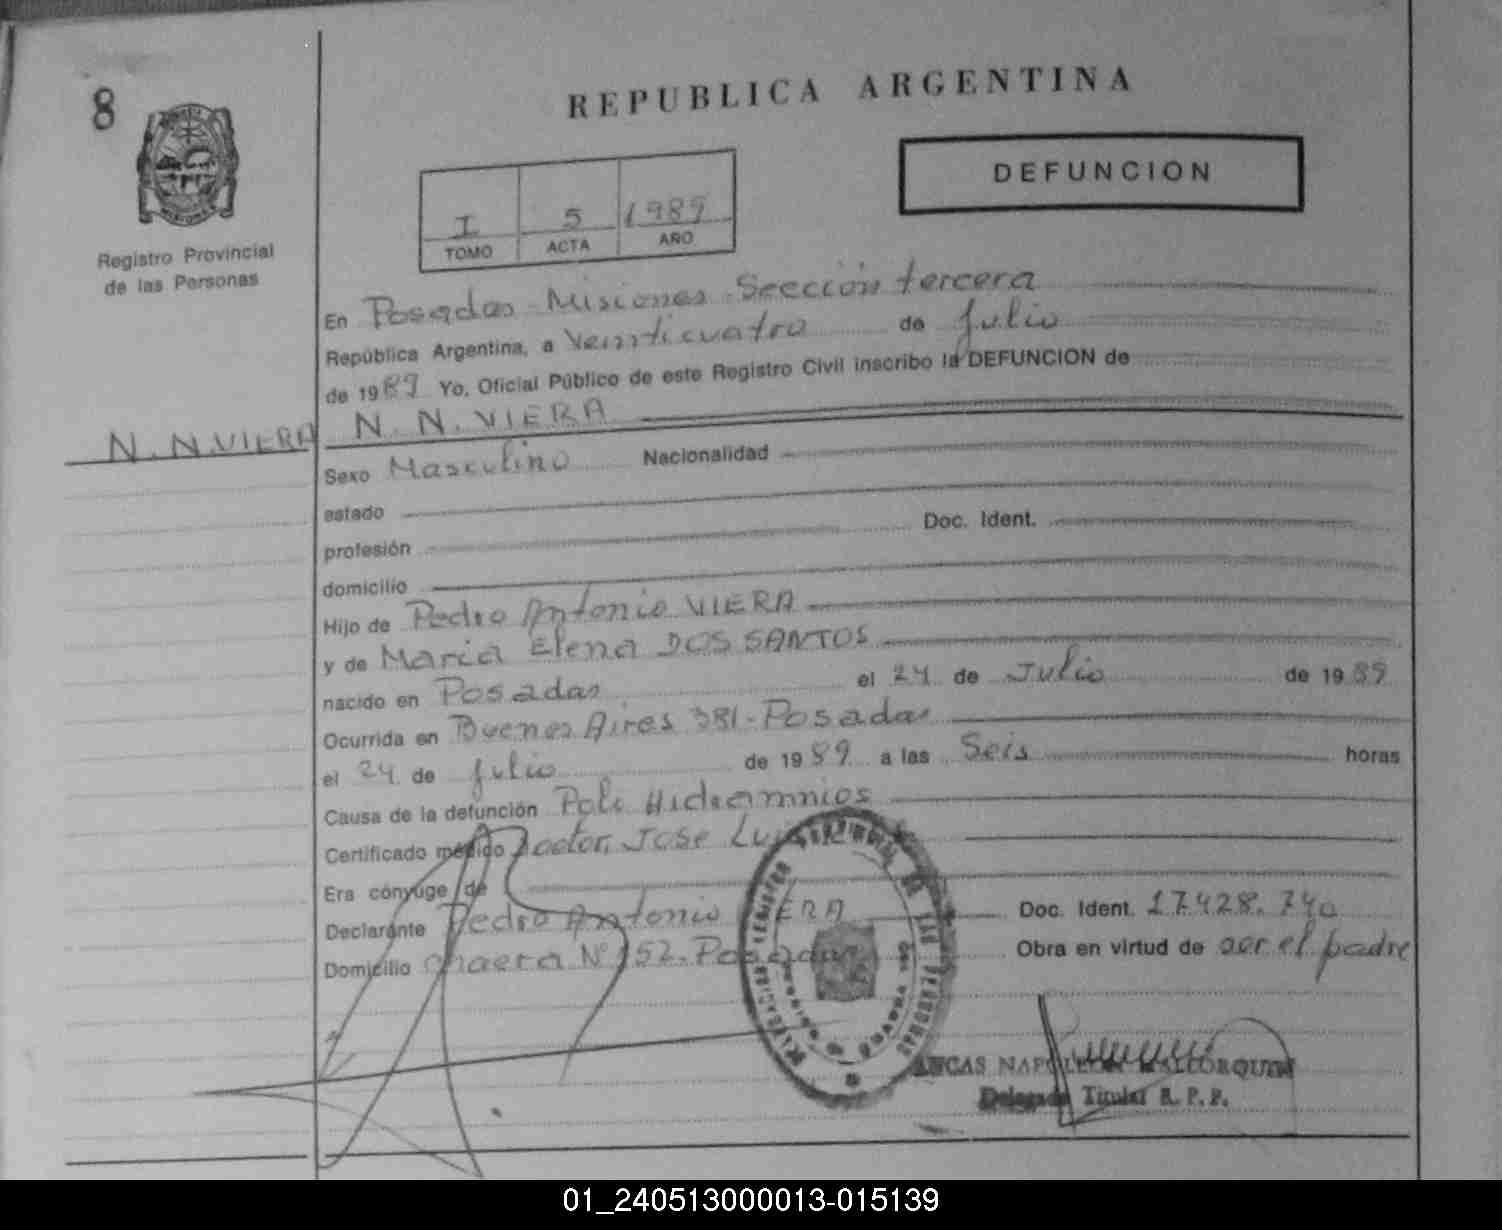 8
REPUBLICA ARGENTINA
DEFUNCION
I 5 1989
TOMO ACTA AÑO
Registro Provincial
de las Personas
En Posadas Misiones Sección tercera
República Argentina, a Veinticuatro de Julio
de 1989 Yo, Oficial Público de este Registro Civil inscribo la DEFUNCION de
N. N. VIERA
N. N. VIERA
Sexo Masculino Nacionalidad
estado
profesión Doc. Ident.
domicilio
Hijo de Pedro Antonio VIERA
y de Maria Elena DOS SANTOS
nacido en Posadas el 24 de Julio de 1989
Ocurrida en Buenos Aires 381-Posadas
el 24 de Julio de 1989 a las Seis horas
Causa de la defunción Poli Hidramnios
Certificado médico Doctor José
Era cónyuge de
Declarante Pedro Antonio VIERA Doc. Ident. 17.428.740
Domicilio chacra Nº 152-Posadas Obra en virtud de ser el padre
LUCAS NAPOLEON MALLORQUIN
Delegado Titular R. P. P.
01_240513000013-015139